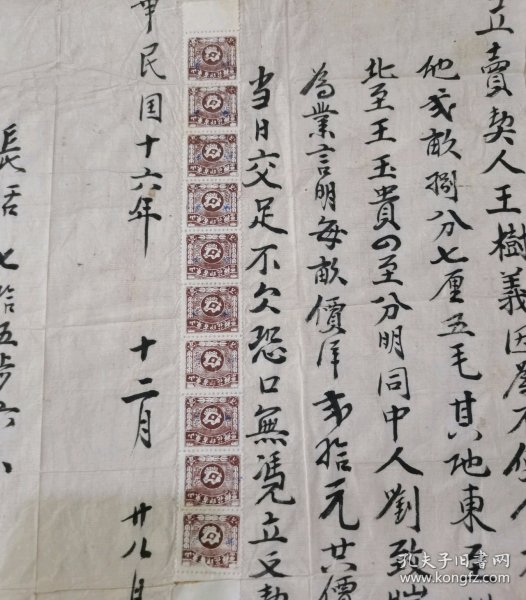 立賣契人王樹義因
地弍畝捌分七厘五毛其地東至
北至王玉貴四至分明同中人劉致
為業言明每畝價洋弍拾元共價
当日交足不欠恐口無憑立文契
華民国十六年 十二月 廿八日
長活七拾五步六
孔夫子旧书网
www.kongfz.com